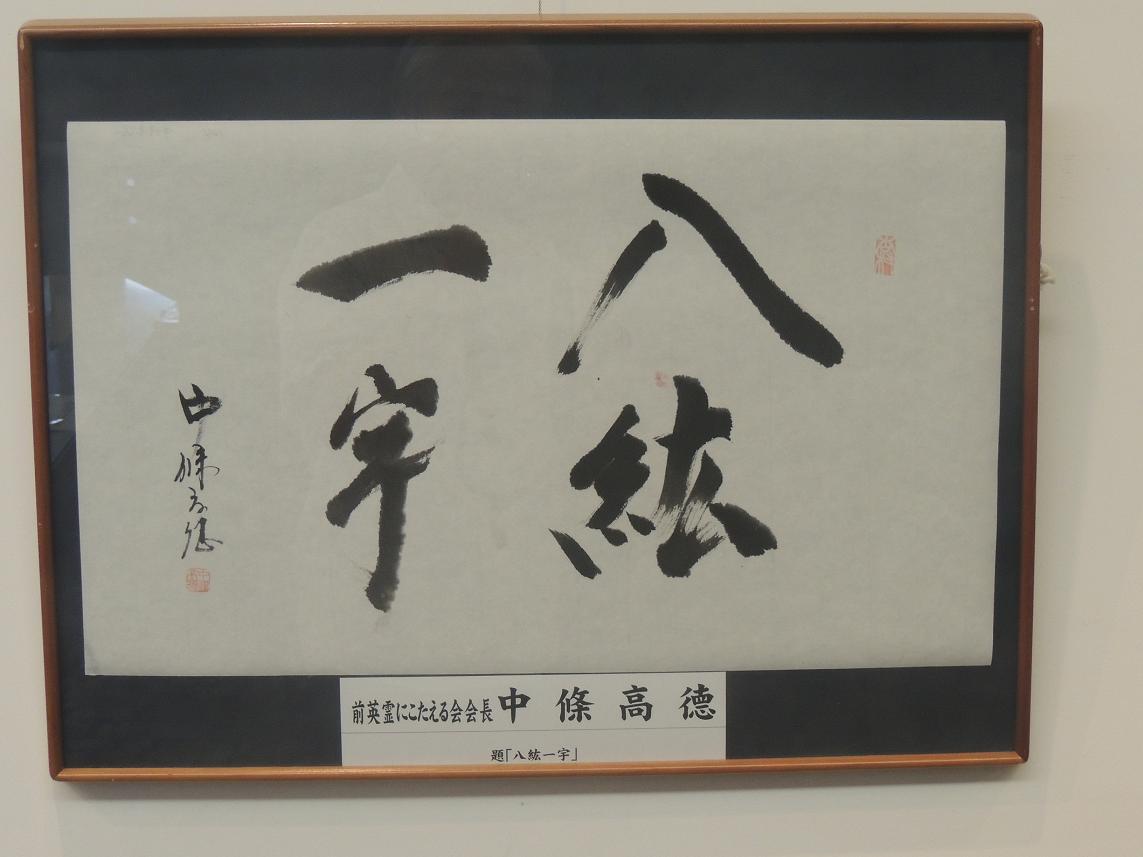 八紘
一宇
中條高德
前英霊にこたえる会会長 中條高德
題「八紘一宇」